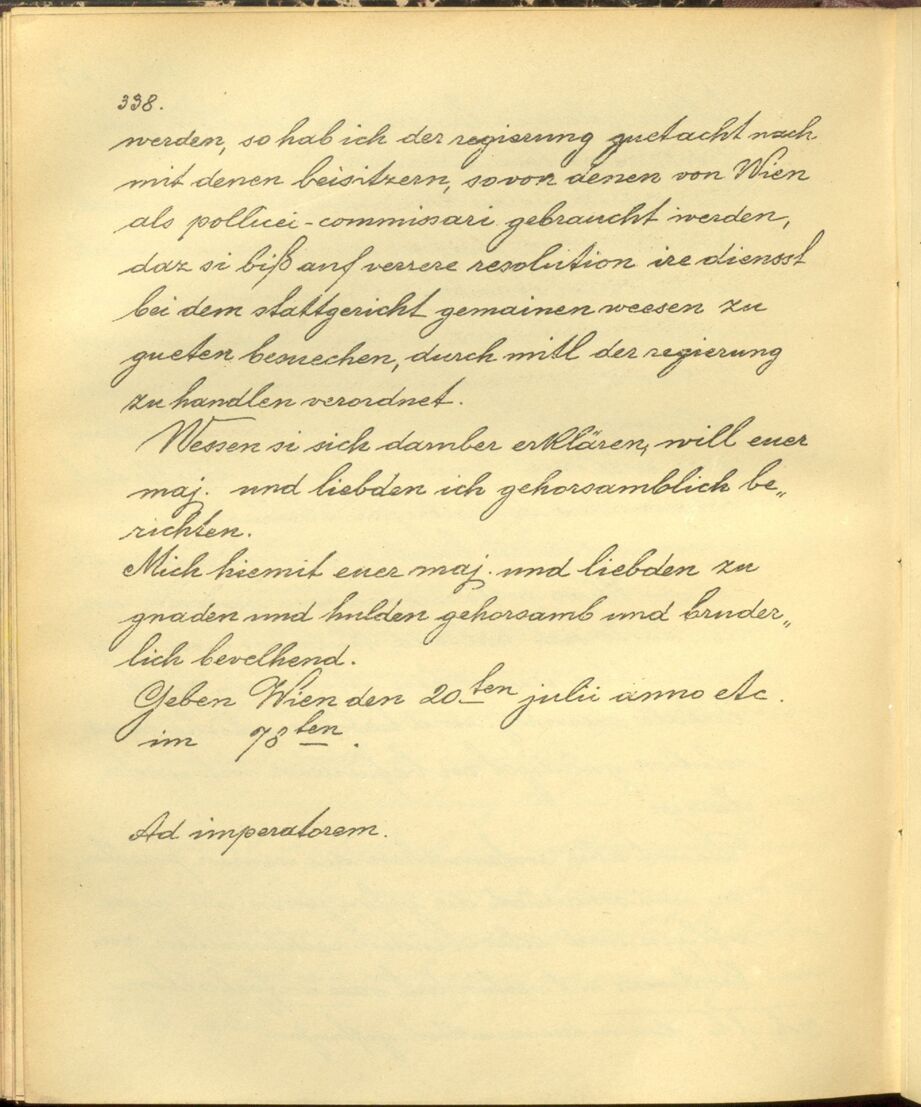 338.
werden, so hab ich der regierung guetacht nach
mit denen beisitzern, so von denen von Wien
als pollicei-commissari gebraucht werden,
daz si biß auf verrere resolution ire diensst
bei dem stattgericht gemainen weesen zu
gueten besuechen, durch mitl der regierung
zu handlen verordnet.
Wessen si sich darüber erklären, will euer
maj. und liebden ich gehorsamblich be„
richten.
Mich hiemit euer maj. und liebden zu
gnaden und hulden gehorsamb und bruder„
lich bevelhend.
Geben Wien den 20ten julii anno etc.
im 78ten.
Ad imperatorem.